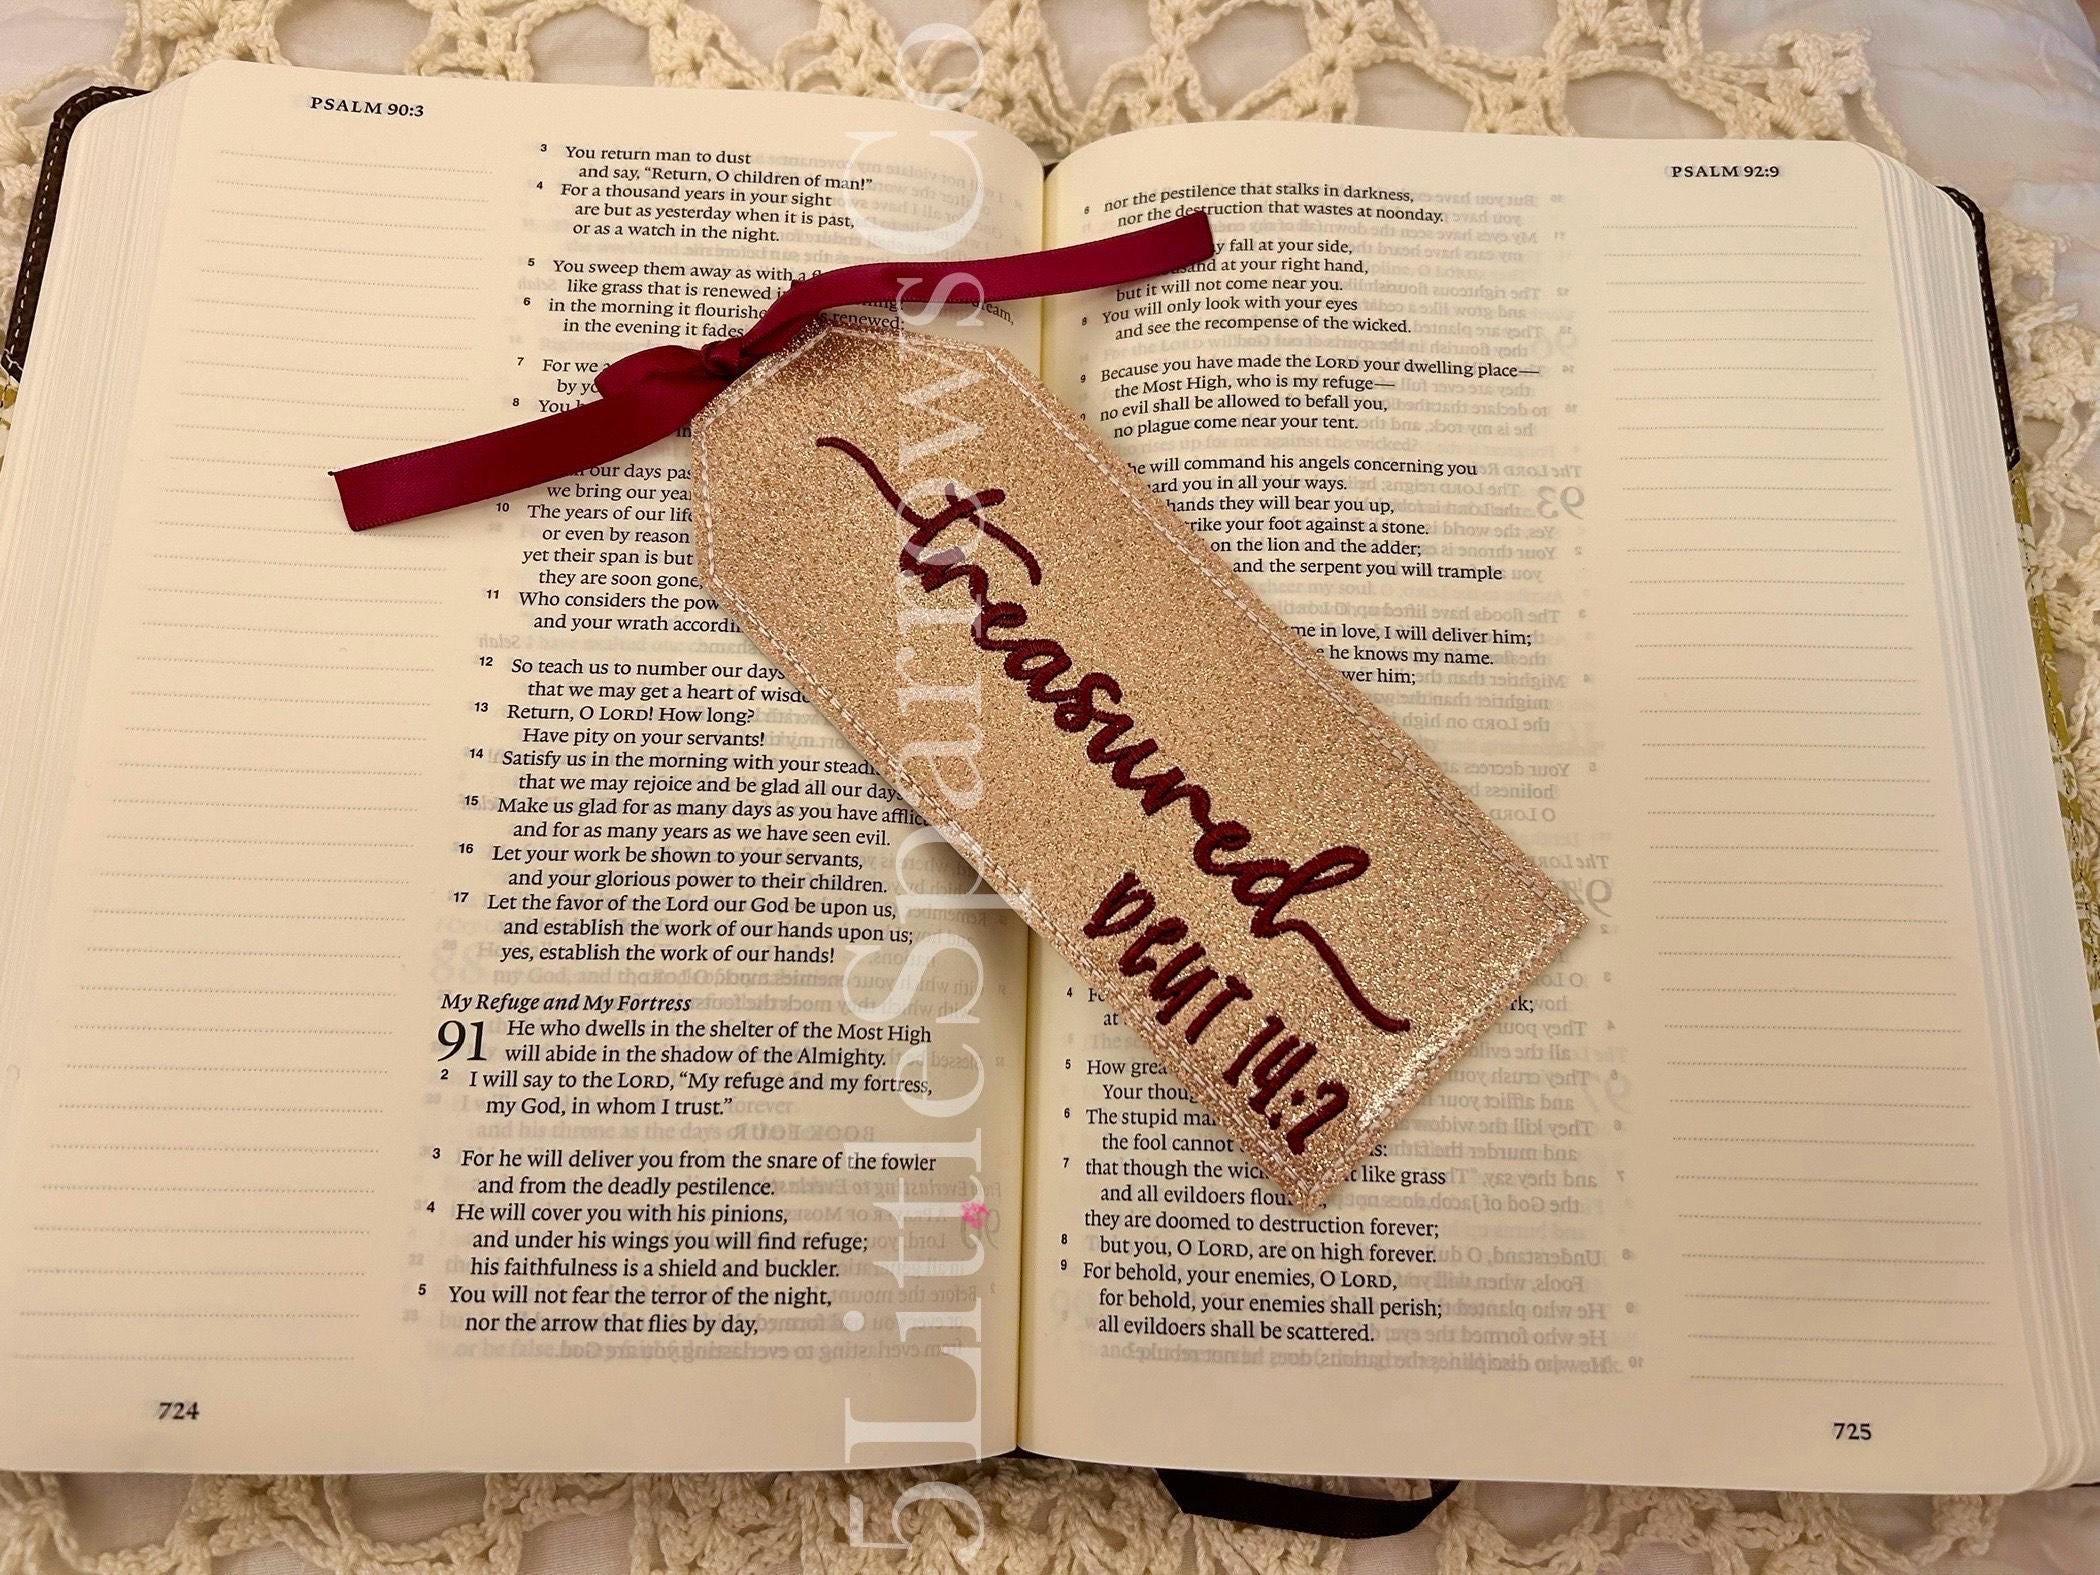 PSALM 90:3
3 You return man to dust
and say, "Return, O children of man!"
4 For a thousand years in your sight
are but as yesterday when it is past,
or as a watch in the night.
5 You sweep them away as with a
like grass that is renewed
6 in the morning it
renewed;
in the evening it fades
7 For we
by
8 You
our days
we bring our
10 The years of our
or even by reason
yet their span is but
they are soon gone,
11 Who considers the
and your wrath
12 So teach us to number our days
that we may get a heart of
13 Return, O LORD! How long?
Have pity on your servants!
14 Satisfy us in the morning with your
that we may rejoice and be glad all our
15 Make us glad for as many days as you have
and for as many years as we have seen evil.
16 Let your work be shown to your servants,
and your glorious power to their children.
17 Let the favor of the Lord our God be upon us,
and establish the work of our hands upon us;
yes, establish the work of our hands!
My Refuge and My Fortress
91 He who dwells in the shelter of the Most High
will abide in the shadow of the Almighty.
2 I will say to the LORD, "My refuge and my fortress,
my God, in whom I trust."
3 For he will deliver you from the snare of the fowler
and from the deadly pestilence.
4 He will cover you with his pinions,
and under his wings you will find refuge;
his faithfulness is a shield and buckler.
5 You will not fear the terror of the night,
nor the arrow that flies by day,
724
PSALM 92:9
6 nor the pestilence that stalks in darkness,
nor the destruction that wastes at noonday.
fall at your side,
at your right hand,
but it will not come near you.
8 You will only look with your eyes
and see the recompense of the wicked.
9 Because you have made the LORD your dwelling place—
the Most High, who is my refuge—
no evil shall be allowed to befall you,
no plague come near your tent.
he will command his angels concerning you
you in all your ways.
hands they will bear you up,
your foot against a stone.
on the lion and the adder;
and the serpent you will trample
in love, I will deliver him;
he knows my name.
him;
4
at
5 How
Your
6 The stupid
the fool cannot
7 that though the
like grass
and all evildoers
they are doomed to destruction forever;
8 but you, O LORD, are on high forever.
9 For behold, your enemies, O LORD,
for behold, your enemies shall perish;
all evildoers shall be scattered.
725
treasured
Deut 14:2
5LittleSparrowsCo